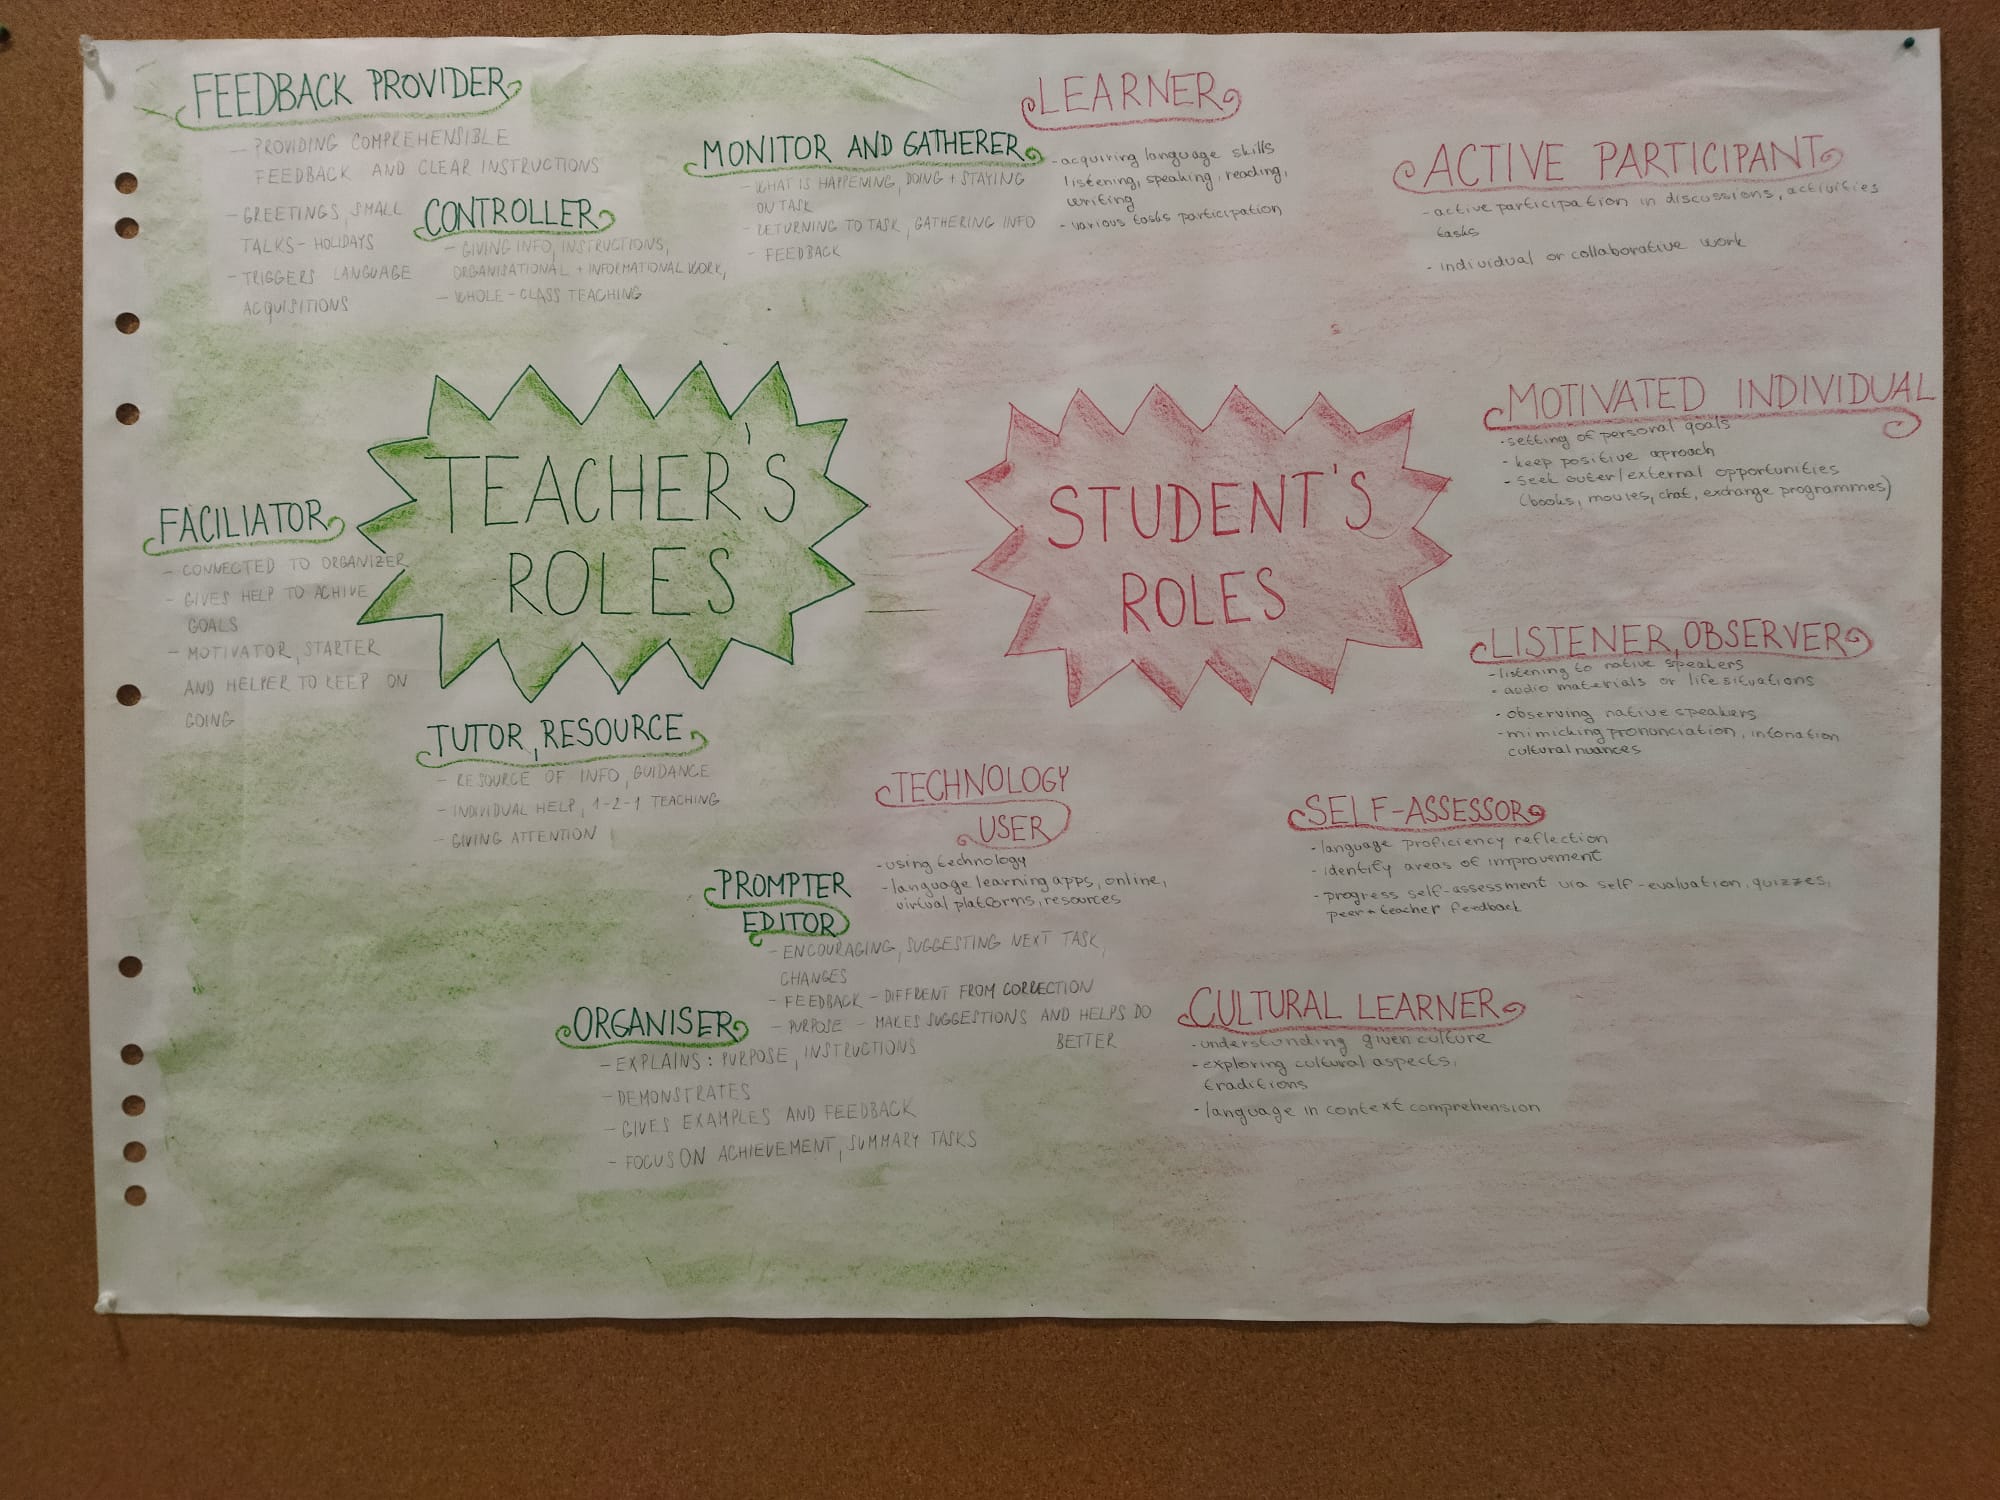 FEEDBACK PROVIDER
- PROVIDING COMPREHENSIBLE
FEEDBACK AND CLEAR INSTRUCTIONS
- GREETINGS, SMALL
TALKS - HOLIDAYS
- TRIGGERS LANGUAGE
ACQUISITIONS
CONTROLLER
- GIVING INFO, INSTRUCTIONS,
ORGANISATIONAL + INFORMATIONAL WORK,
- WHOLE - CLASS TEACHING
MONITOR AND GATHERER
- WHAT IS HAPPENING, DOING + STAYING
ON TASK
- RETURNING TO TASK, GATHERING INFO
- FEEDBACK
TEACHER'S
ROLES
FACILIATOR
- CONNECTED TO ORGANIZER
- GIVES HELP TO ACHIVE
GOALS
- MOTIVATOR, STARTER
AND HELPER TO KEEP ON
GOING
TUTOR, RESOURCE
- RESOURCE OF INFO, GUIDANCE
- INDIVIDUAL HELP, 1-2-1 TEACHING
- GIVING ATTENTION
PROMPTER
EDITOR
- ENCOURAGING, SUGGESTING NEXT TASK,
CHANGES
- FEEDBACK - DIFFRENT FROM CORRECTION
- PURPOSE - MAKES SUGGESTIONS AND HELPS DO
BETTER
ORGANISER
- EXPLAINS: PURPOSE, INSTRUCTIONS
- DEMONSTRATES
- GIVES EXAMPLES AND FEEDBACK
- FOCUS ON ACHIEVEMENT, SUMMARY TASKS
LEARNER
- acquiring language skills
listening, speaking, reading,
writing
- various tasks participation
ACTIVE PARTICIPANT
- active participation in discussions, activities
tasks
- individual or collaborative work
STUDENT'S
ROLES
MOTIVATED INDIVIDUAL
- setting of personal goals
- keep positive aproach
- seek outer/external opportunities
(books, movies, chat, exchange programmes)
LISTENER, OBSERVER
- listening to native speakers
- audio materials or life situations
- observing native speakers
- mimicking pronunciation, intonation
cultural nuances
TECHNOLOGY
USER
- using technology
- language learning apps, online,
virtual platforms, resources
SELF-ASSESSOR
- language proficiency reflection
- identify areas of improvement
- progress self-assessment via self-evaluation, quizzes,
peer + teacher feedback
CULTURAL LEARNER
- understanding given culture
- exploring cultural aspects,
traditions
- language in context comprehension